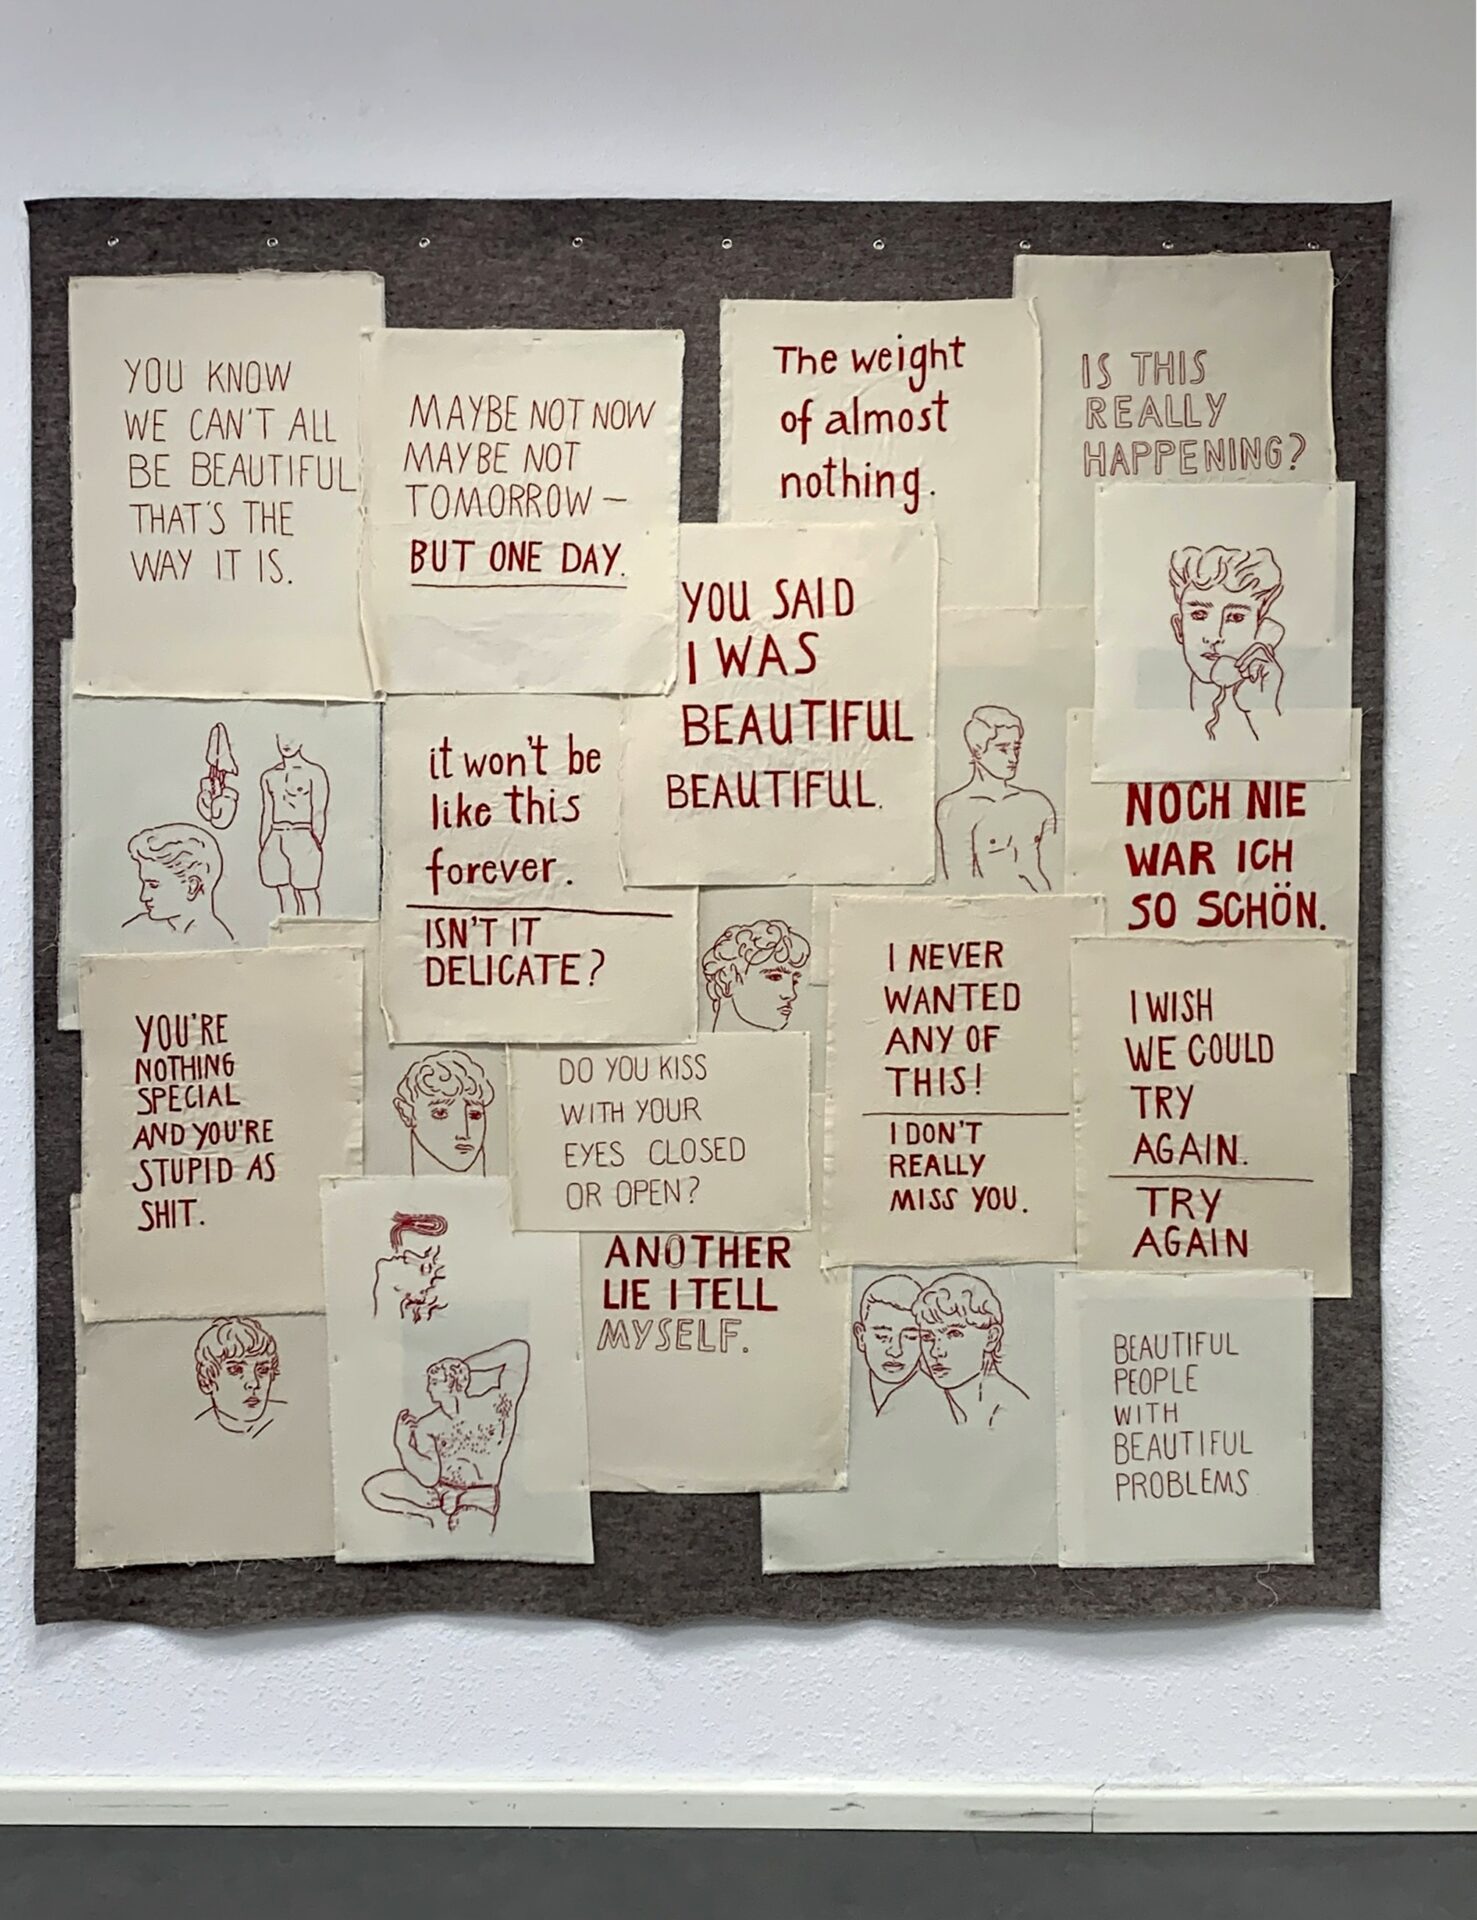 YOU KNOW
WE CAN'T ALL
BE BEAUTIFUL
THAT'S THE
WAY IT IS.
MAYBE NOT NOW
MAYBE NOT
TOMORROW —
BUT ONE DAY.
The weight
of almost
nothing.
IS THIS
REALLY
HAPPENING?
YOU SAID
I WAS
BEAUTIFUL
BEAUTIFUL.
it won't be
like this
forever.
ISN'T IT
DELICATE?
NOCH NIE
WAR ICH
SO SCHÖN.
YOU'RE
NOTHING
SPECIAL
AND YOU'RE
STUPID AS
SHIT.
DO YOU KISS
WITH YOUR
EYES CLOSED
OR OPEN?
I NEVER
WANTED
ANY OF
THIS!
I DON'T
REALLY
MISS YOU.
I WISH
WE COULD
TRY
AGAIN.
TRY
AGAIN
ANOTHER
LIE I TELL
MYSELF.
BEAUTIFUL
PEOPLE
WITH
BEAUTIFUL
PROBLEMS